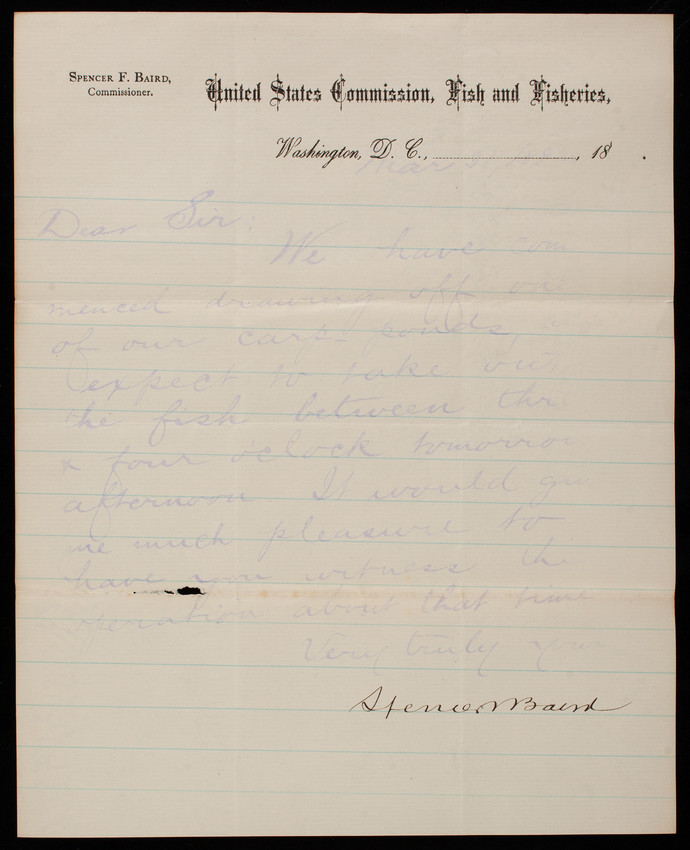 SPENCER F. BAIRD,
Commissioner.
United States Commission, Fish and Fisheries,
Washington, D. C., Mar 18 .
Dear Sir:
We have com
menced drawing off one
of our carp-ponds,
expect to take out
the fish between thre
& four o'clock tomorrow
afternoon. It would giv
me much pleasure to
have you witness the
operation about that time
Very truly yours
Spencer F Baird